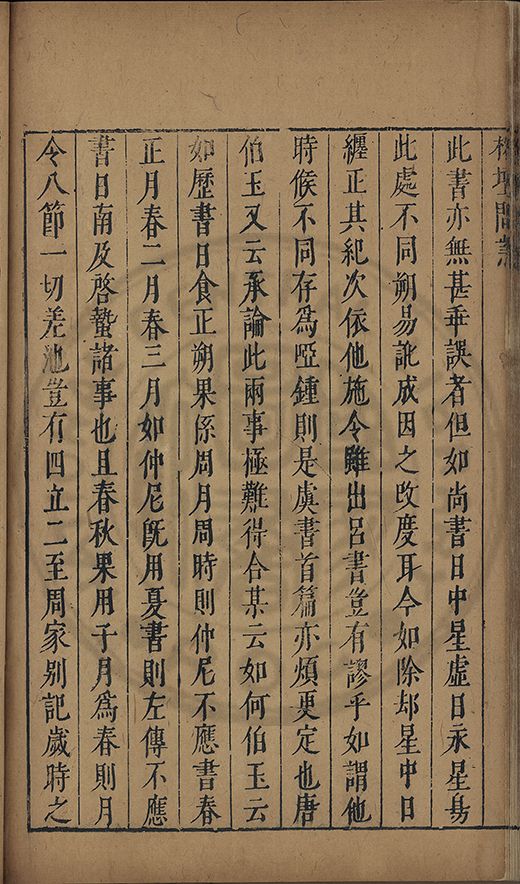 榕壇問業
此書亦無甚乖誤者但如尚書日中星虛日永星昜
此處不同朔易訛成因之改度耳今如除却星中日
纏正其紀次依他施令雖出呂書豈有謬乎如謂他
時候不同存為啞鍾則是虞書首篇亦煩更定也唐
伯玉又云承論此兩事極難得合某云如何伯玉云
如歷書日食正朔果係周月周時則仲尼不應書春
正月春二月春三月如仲尼旣用夏書則左傳不應
書日南及啓蟄諸事也且春秋果用子月為春則月
令八節一切差池豈有四立二至周家別記歲時之